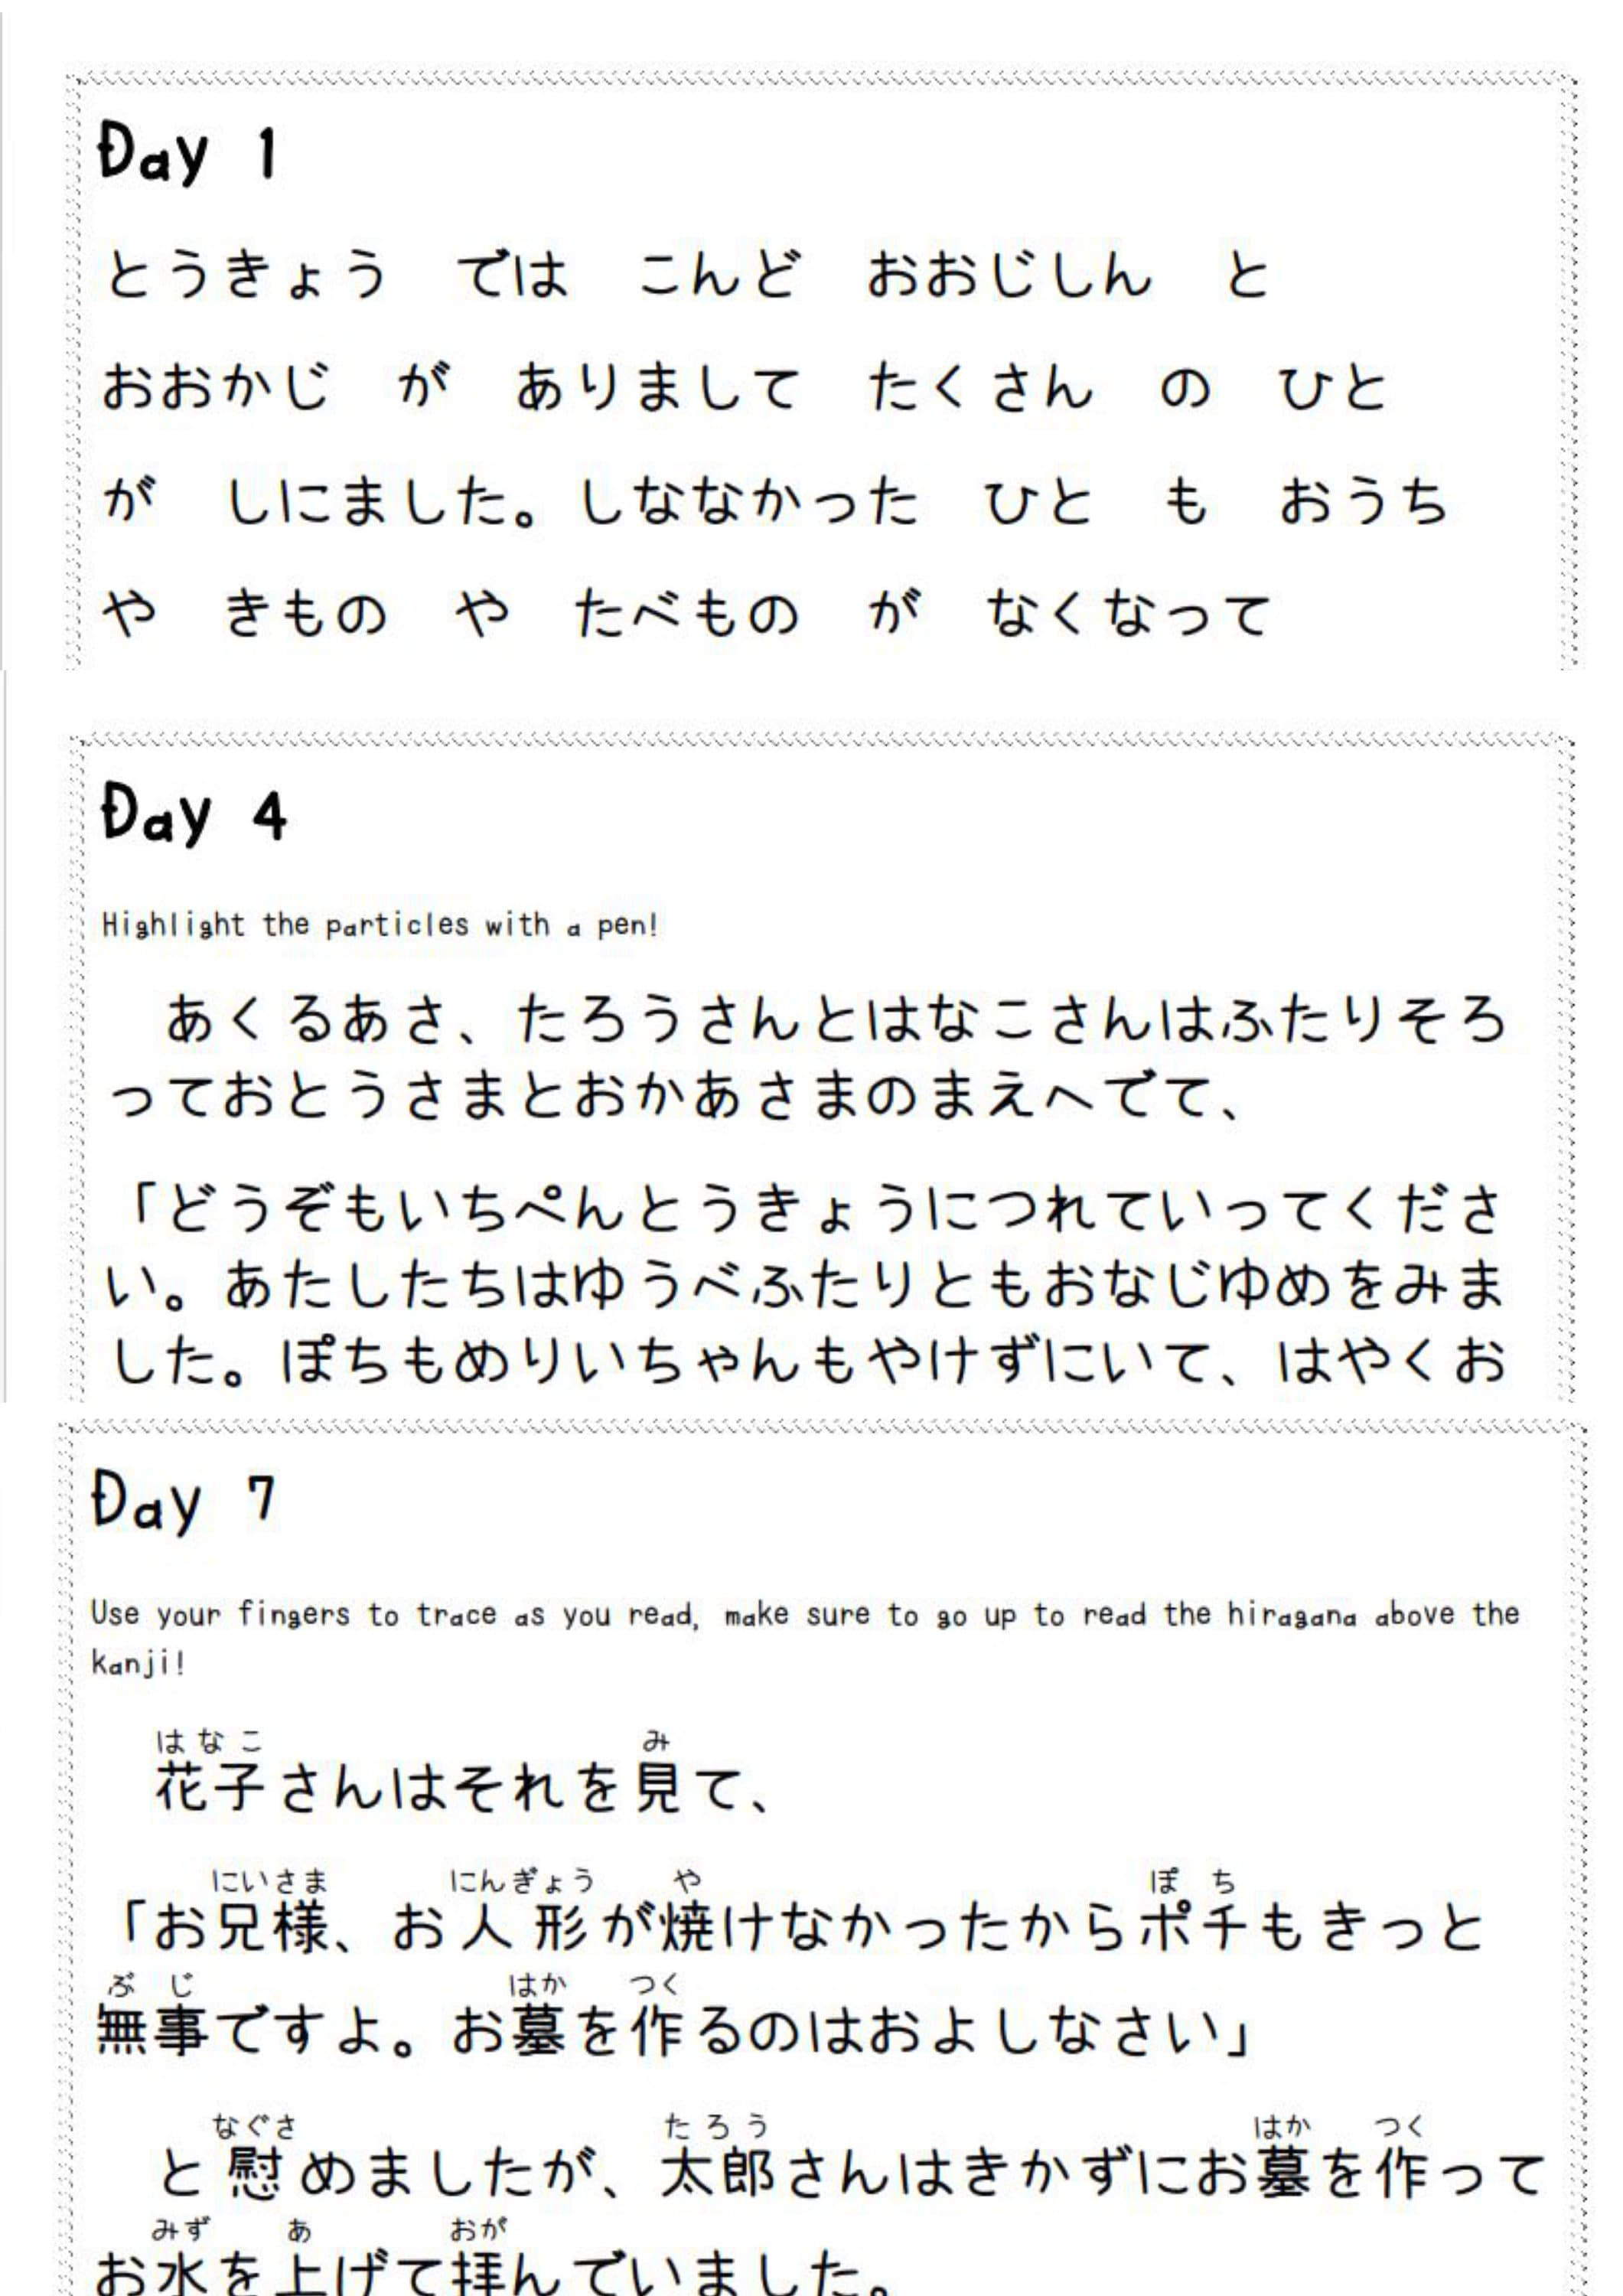 Day 1
とうきょう　では　こんど　おおじしん　と
おおかじ　が　ありまして　たくさん　の　ひと
が　しにました。しななかった　ひと　も　おうち
や　きもの　や　たべもの　が　なくなって
Day 4
Highlight the particles with a pen!
あくるあさ、たろうさんとはなこさんはふたりそろ
っておとうさまとおかあさまのまえへでて、
「どうぞもいちぺんとうきょうにつれていってくださ
い。あたしたちはゆうべふたりともおなじゆめをみま
した。ぽちもめりいちゃんもやけずにいて、はやくお
Day 7
Use your fingers to trace as you read, make sure to go up to read the hiragana above the
kanji!
はなこ　み
花子さんはそれを見て、
にいさま　にんぎょう　や　ぽち
「お兄様、お人形が焼けなかったからポチもきっと
ぶじ　はか　つく
無事ですよ。お墓を作るのはおよしなさい」
なぐさ　たろう　はか　つく
と慰めましたが、太郎さんはきかずにお墓を作って
みず　あ　おが
お水を上げて拝んでいました。